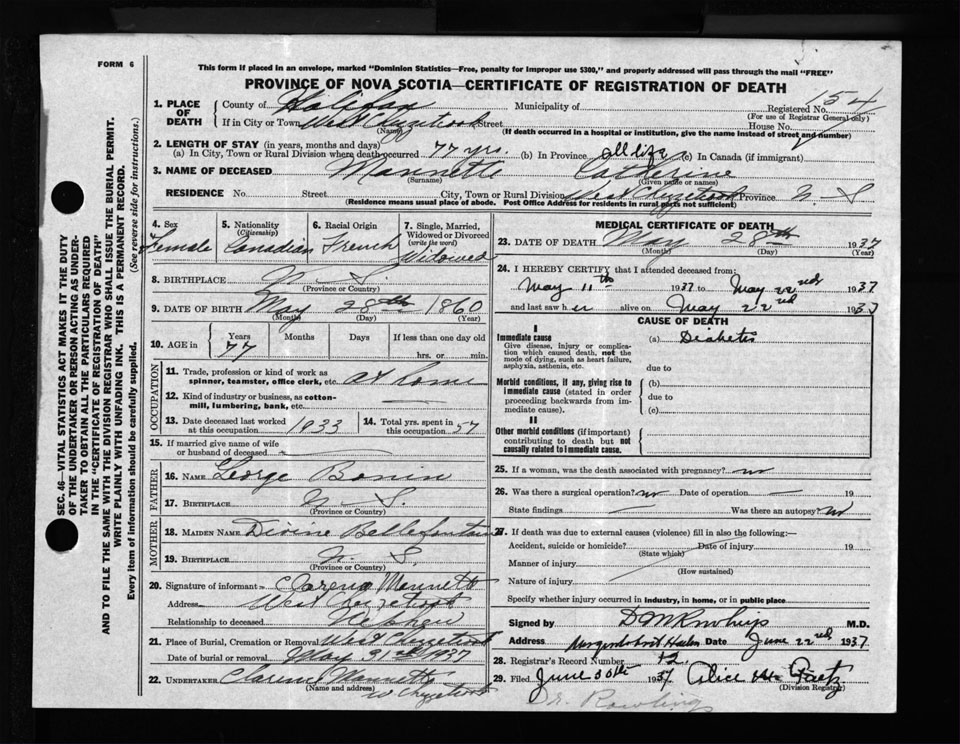 FORM 6
This form if placed in an envelope, marked "Dominion Statistics—Free, penalty for improper use $300," and properly addressed will pass through the mail "FREE"
PROVINCE OF NOVA SCOTIA—CERTIFICATE OF REGISTRATION OF DEATH
SEC. 46—VITAL STATISTICS ACT MAKES IT THE DUTY
OF THE UNDERTAKER OR PERSON ACTING AS UNDER-
TAKER TO OBTAIN ALL THE PARTICULARS REQUIRED
IN THE "CERTIFICATE OF REGISTRATION OF DEATH"
AND TO FILE THE SAME WITH THE DIVISION REGISTRAR WHO SHALL ISSUE THE BURIAL PERMIT.
WRITE PLAINLY WITH UNFADING INK. THIS IS A PERMANENT RECORD.
Every item of information should be carefully supplied. (See reverse side for instructions.)
1. PLACE OF DEATH
County of Halifax Municipality of Registered No. 154
(For use of Registrar General only)
If in City or Town West Chezzetcook Street House No.
(Name) (If death occurred in a hospital or institution, give the name instead of street and number)
2. LENGTH OF STAY (in years, months and days)
(a) In City, Town or Rural Division where death occurred 77 yrs. (b) In Province all life (c) In Canada (if immigrant)
3. NAME OF DECEASED Mannette Catherine
(Surname) (Given name or names)
RESIDENCE No. Street City, Town or Rural Division West Chezzetcook Province N. S
(Residence means usual place of abode. Post Office Address for residents in rural parts not sufficient)
4. Sex Female
5. Nationality (Citizenship) Canadian
6. Racial Origin French
7. Single, Married, Widowed or Divorced (write the word) Widowed
8. BIRTHPLACE N. S.
(Province or Country)
9. DATE OF BIRTH May 28th 1860
(Month) (Day) (Year)
10. AGE in Years 77 Months Days If less than one day old
hrs. or min.
OCCUPATION
11. Trade, profession or kind of work as spinner, teamster, office clerk, etc. At home
12. Kind of industry or business, as cotton-mill, lumbering, bank, etc. —
13. Date deceased last worked at this occupation 1933
14. Total yrs. spent in this occupation 57
15. If married give name of wife or husband of deceased
FATHER
16. NAME George Bonin
17. BIRTHPLACE N. S.
(Province or Country)
MOTHER
18. MAIDEN NAME Divine Bellefontaine
19. BIRTHPLACE N. S.
(Province or Country)
20. Signature of informant Clarence Mannette
Address West Chezzetcook
Relationship to deceased Nephew
21. Place of Burial, Cremation or Removal West Chezzetcook
Date of burial or removal May 31st 1937
22. UNDERTAKER Clarence Mannette
(Name and address) W Chezzetcook
MEDICAL CERTIFICATE OF DEATH
23. DATE OF DEATH May 28th 1937
(Month) (Day) (Year)
24. I HEREBY CERTIFY that I attended deceased from:
May 11th 1937 to May 22nd 1937
and last saw her alive on May 22nd 1937
CAUSE OF DEATH
I
Immediate cause
Give disease, injury or complication which caused death, not the mode of dying, such as heart failure, asphyxia, asthenia, etc.
(a) Diabetes
due to
Morbid conditions, if any, giving rise to immediate cause (stated in order proceeding backwards from immediate cause).
(b)
due to
(c)
II
Other morbid conditions (if important) contributing to death but not causally related to immediate cause.
25. If a woman, was the death associated with pregnancy? no
26. Was there a surgical operation? no Date of operation — 19
State findings — Was there an autopsy? no
27. If death was due to external causes (violence) fill in also the following:—
Accident, suicide or homicide? Date of injury 19
(State which)
Manner of injury
(How sustained)
Nature of injury
Specify whether injury occurred in industry, in home, or in public place
Signed by M.D.
Address Musquodoboit Harbor Date June 22nd 1937
28. Registrar's Record Number 12
29. Filed June 30th 1937 Alice
(Division Registrar)
Dr. Rowlings